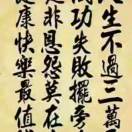 人生不過三萬
成功失敗擺旁
是非恩怨莫在
健康快樂最值